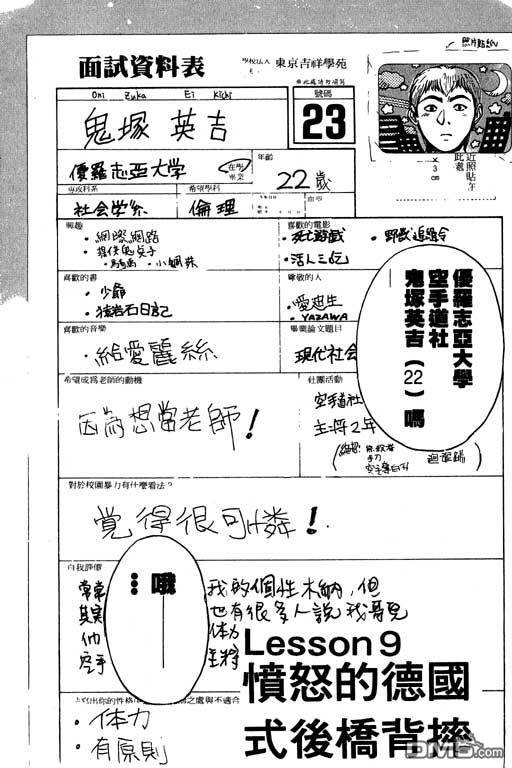 照片點紙
面試資料表
學校法人 東京吉祥學苑
Oni Zuka Ei Kichi
鬼塚 英吉
號碼
23
近照貼在
此處
×3cm
優羅志亞大学
在學
畢業
年齡
22歲
專攻科系
社会学系
希望學科
倫理
興趣
・網際網路
喜歡的電影
・死亡遊戲
・野獸追緝令
喜歡的書
・少爺
尊敬的人
・YAZAWA
優羅志亞大學
空手道社
鬼塚英吉(22)嗎
喜歡的音樂
・給愛麗絲
畢業論文題目
現代社会
希望成為老師的動機
因為想當老師!
社團活動
空手道社
主將2年
迴旋踢
對於校園暴力有什麼看法?
覺得很可憐!
自我評價
常常
其實
他
空手
哦
…
我的個性木納,但
也有很多人說我哥兒
体力
主將
Lesson 9
憤怒的德國
式後橋背摔
・体力
・有原則
DM5.com